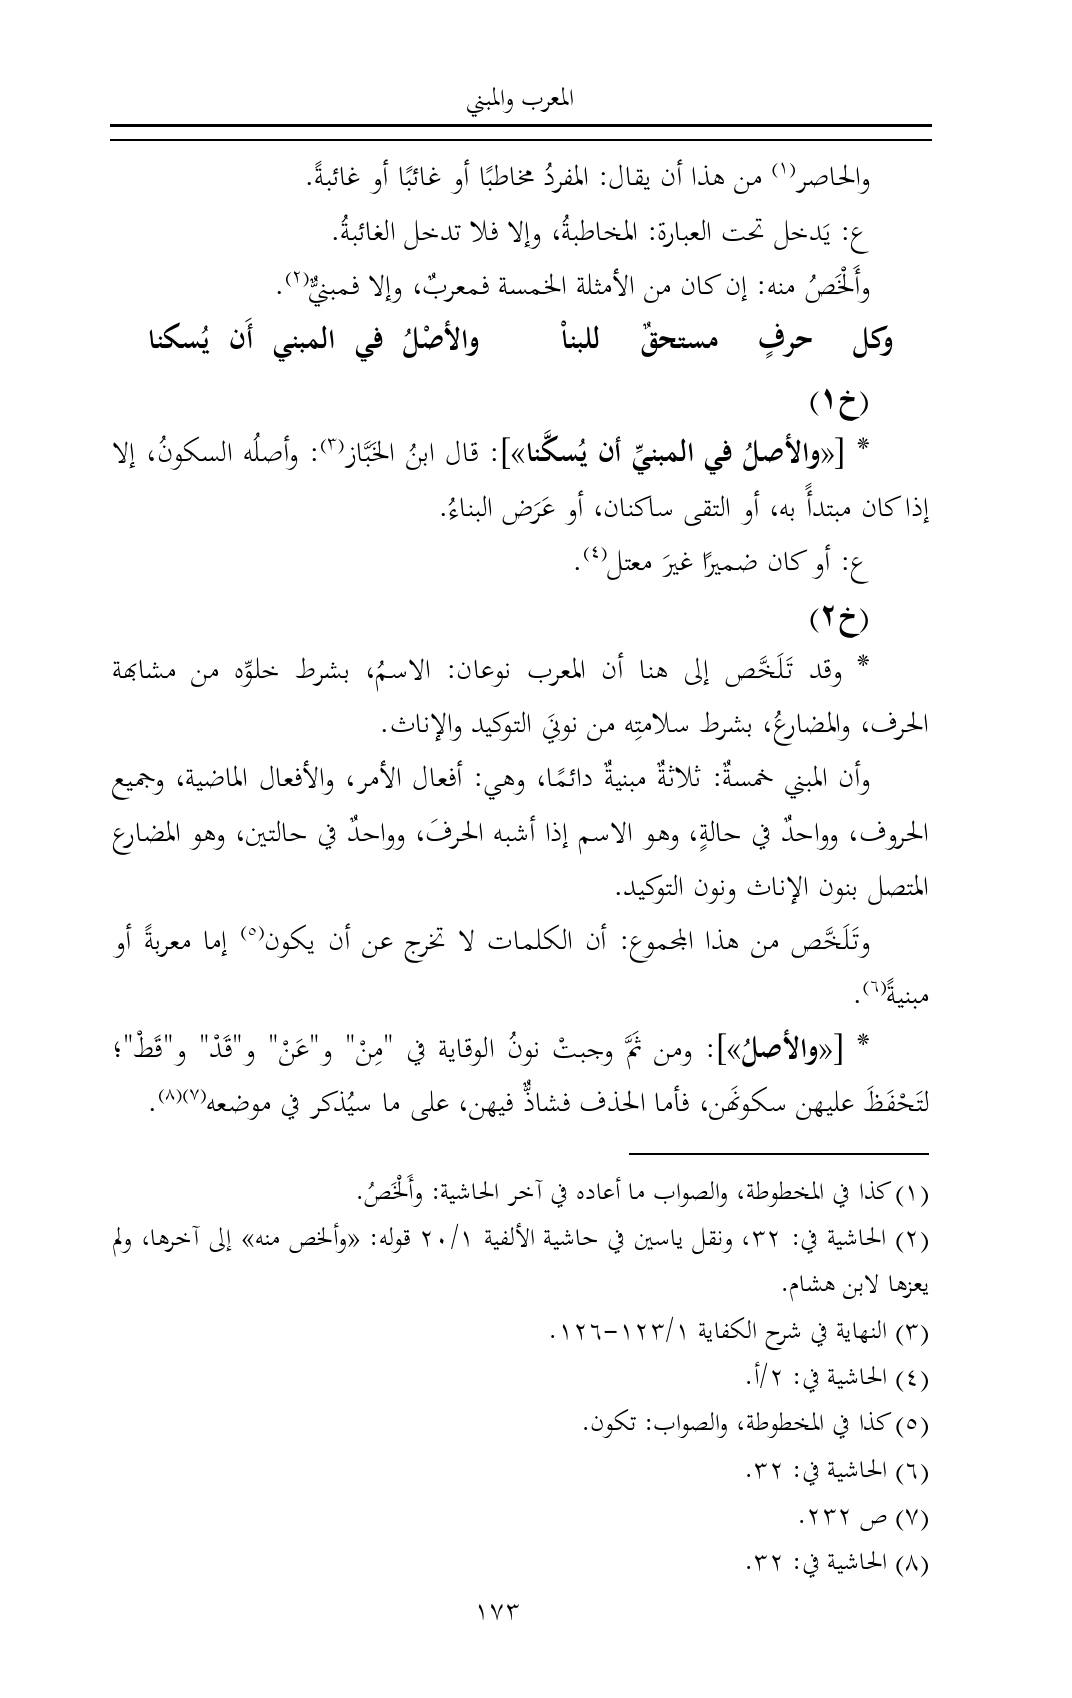 المعرب والمبني
والحاصر(١) من هذا أن يقال: المفردُ مخاطبًا أو غائبًا أو غائبةً.
ع: يَدخل تحت العبارة: المخاطبةُ، وإلا فلا تدخل الغائبةُ.
وأَلْخَصُ منه: إن كان من الأمثلة الخمسة فمعربٌ، وإلا فمبنيٌّ(٢).
وكل حرفٍ مستحقٌ للبناْ والأصْلُ في المبني أَن يُسكنا
(خ١)
* [«والأصلُ في المبنيِّ أن يُسكَّنا»]: قال ابنُ الخَبَّاز(٣): وأصلُه السكونُ، إلا
إذا كان مبتدأً به، أو التقى ساكنان، أو عَرَض البناءُ.
ع: أو كان ضميرًا غيرَ معتل(٤).
(خ٢)
* وقد تَلَخَّص إلى هنا أن المعرب نوعان: الاسمُ، بشرط خلوِّه من مشابهة
الحرف، والمضارعُ، بشرط سلامتِه من نونيَ التوكيد والإناث.
وأن المبني خمسةٌ: ثلاثةٌ مبنيةٌ دائمًا، وهي: أفعال الأمر، والأفعال الماضية، وجميع
الحروف، وواحدٌ في حالةٍ، وهو الاسم إذا أشبه الحرفَ، وواحدٌ في حالتين، وهو المضارع
المتصل بنون الإناث ونون التوكيد.
وتَلَخَّص من هذا المجموع: أن الكلمات لا تخرج عن أن يكون(٥) إما معربةً أو
مبنيةً(٦).
* [«والأصلُ»]: ومن ثَمَّ وجبتْ نونُ الوقاية في "مِنْ" و"عَنْ" و"قَدْ" و"قَطْ"؛
لتَحْفَظَ عليهن سكونَهن، فأما الحذف فشاذٌّ فيهن، على ما سيُذكر في موضعه(٧)(٨).
(١) كذا في المخطوطة، والصواب ما أعاده في آخر الحاشية: وأَلْخَصُ.
(٢) الحاشية في: ٣٢، ونقل ياسين في حاشية الألفية ٢٠/١ قوله: «وألخص منه» إلى آخرها، ولم
يعزها لابن هشام.
(٣) النهاية في شرح الكفاية ١٢٣/١-١٢٦.
(٤) الحاشية في: ٢/أ.
(٥) كذا في المخطوطة، والصواب: تكون.
(٦) الحاشية في: ٣٢.
(٧) ص ٢٣٢.
(٨) الحاشية في: ٣٢.
١٧٣